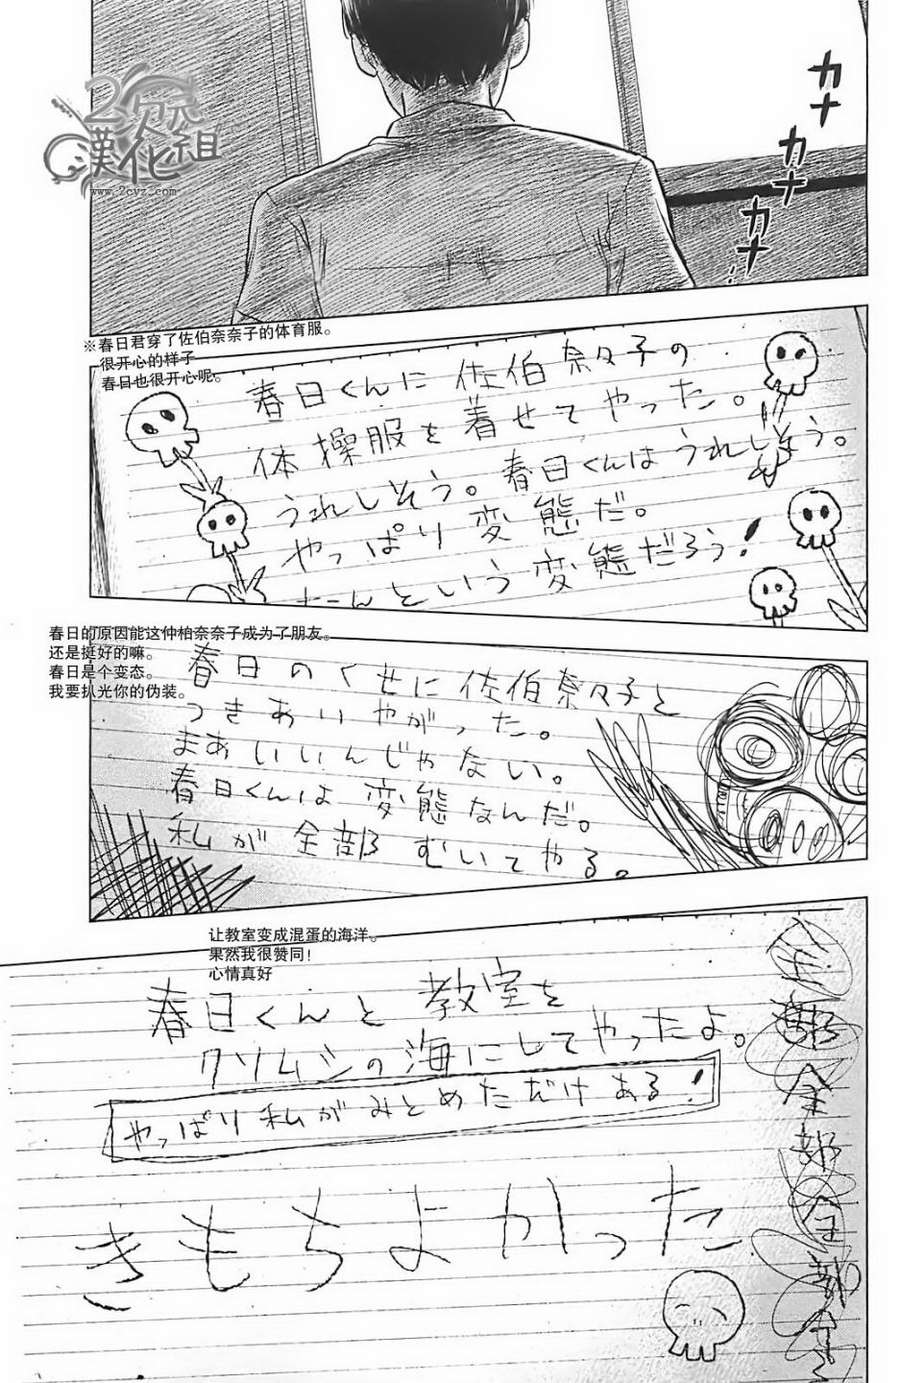 2次元
漢化組
www.2cyz.com
カナ
カナ
カナ…
※春日君穿了佐伯奈奈子的体育服。
很开心的样子
春日也很开心呢。
春日くんに 佐伯奈々子の
体操服を着せてやった。
うれしそう。春日くんはうれしそう。
やっぱり変態だ。
なんという変態だろう!
春日的原因能这仲柏奈奈子成为了朋友。
还是挺好的嘛。
春日是个变态。
我要扒光你的伪装。
春日のくせに佐伯奈々子と
つきあいやがった。
まあいいんじゃない。
春日くんは変態なんだ。
私が全部むいてやる。
让教室变成混蛋的海洋。
果然我很赞同!
心情真好
春日くんと教室を
クソムシの海にしてやったよ。
やっぱり私がみとめただけある!
きもちよかった
全部全部全部全